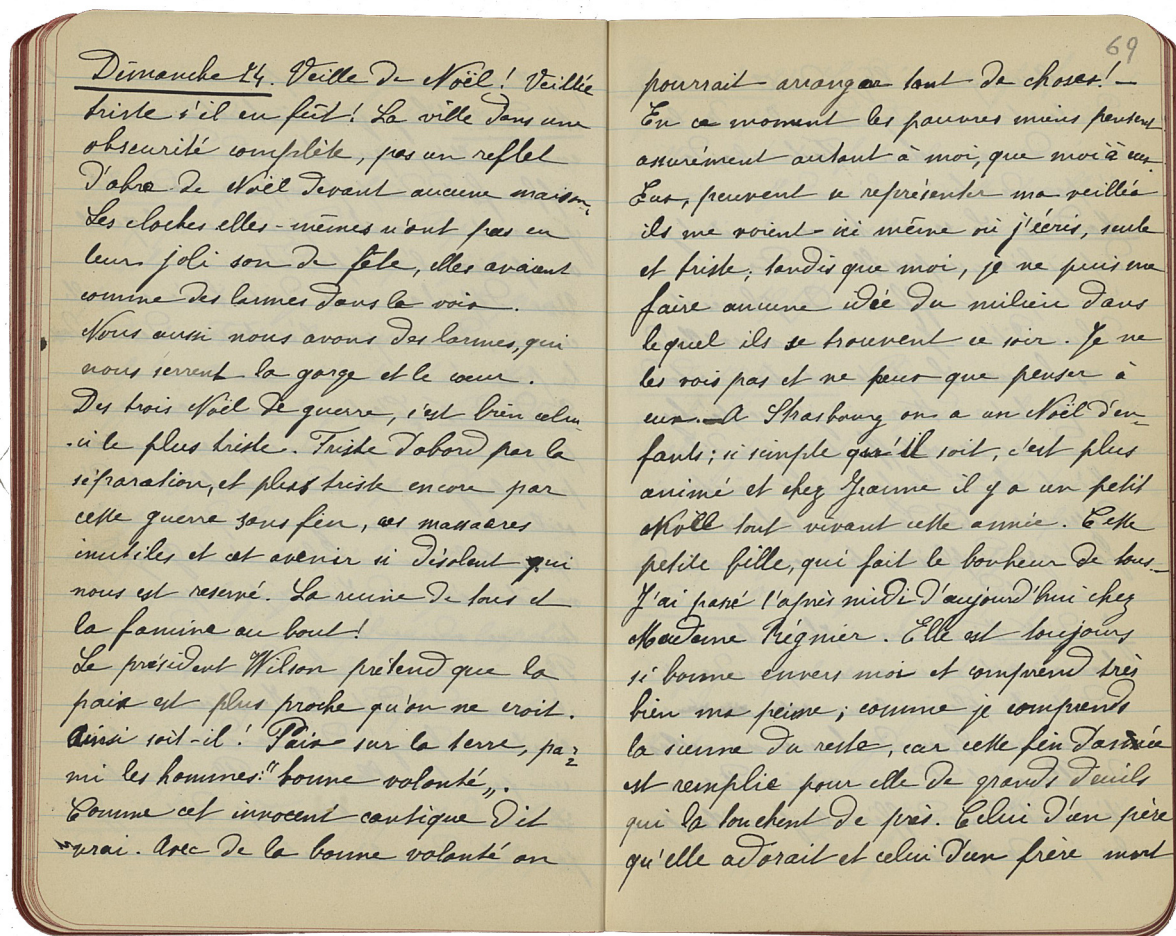 Dimanche 24. Veille de Noël! Veillée
triste s'il en fût! La ville dans une
obscurité complète, pas un reflet
d'abre de Noël devant aucune maison.
Les cloches elles-mêmes n'ont pas eu
leur joli son de fête, elles avaient
comme des larmes dans la voix.
Nous aussi nous avons des larmes, qui
nous serrent la gorge et le cœur.
Des trois Noël de guerre, c'est bien celui
-ci le plus triste. Triste d'abord par la
séparation, et plus triste encore par
cette guerre sans fin, ces massacres
inutiles et cet avenir si désolent qui
nous est reservé. La ruine de tous et
la famine au bout!
Le président Wilson prétend que la
paix est plus proche qu'on ne croit.
Ainsi soit-il! Paix sur la terre, pa-
mi les hommes "bonne volonté".
Comme cet innocent cantique dit
vrai. Avec de la bonne volonté on
69
pourrait arranger tant de choses! -
En ce moment les pauvres miens pensent
assurément autant à moi, que moi à eux.
Eux, peuvent se représenter ma veillée
ils me voient ici même où j'écris, seule
et triste; tandis que moi, je ne puis me
faire aucune idée du milieu dans
lequel ils se trouvent ce soir. Je ne
les vois pas et ne peux que penser à
eux. - A Strasbourg on a un Noël d'en-
fants; si simple qu'il soit, c'est plus
animé et chez Jeanne il y a un petit
Noël tout vivant cette année. Cette
petite fille, qui fait le bonheur de tous. -
J'ai passé l'après midi d'aujourd'hui chez
Madame Régnier. Elle est toujours
si bonne envers moi et comprend très
bien ma peine; comme je comprends
la sienne du reste, car cette fin d'année
est remplie pour elle de grands deuils
qui la touchent de près. Celui d'un père
qu'elle adorait et celui d'un frère mort